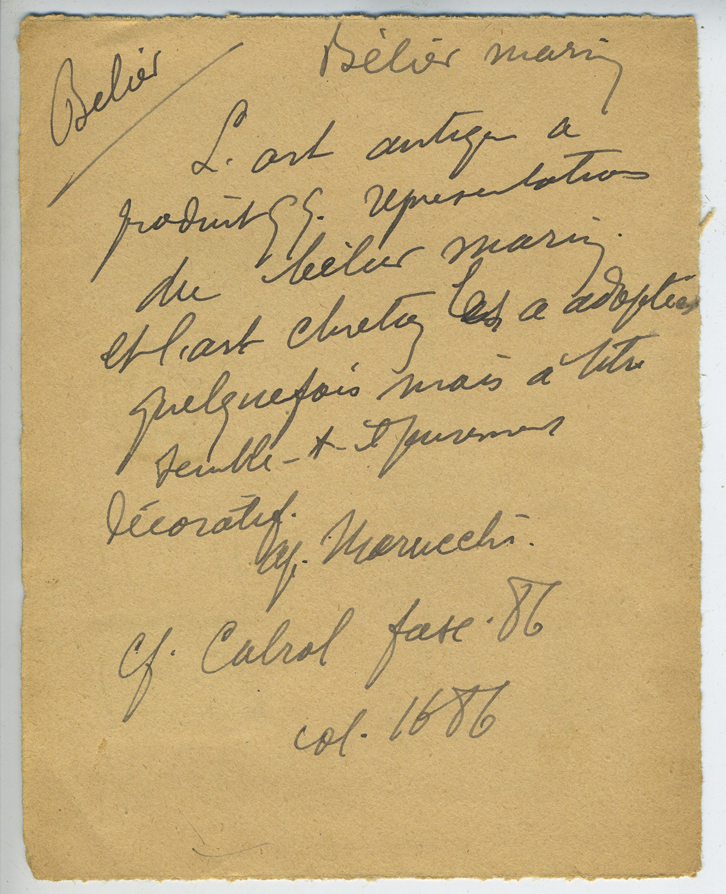 Bélier
Bélier marin
L'art antique a
produit qq. représentations
du bélier marin.
et l'art chrétien les a adoptées
quelquefois mais à titre
semble-t-il purement
décoratif.
cf. Marucchi.
cf. Cabrol fasc. 86
col. 1686